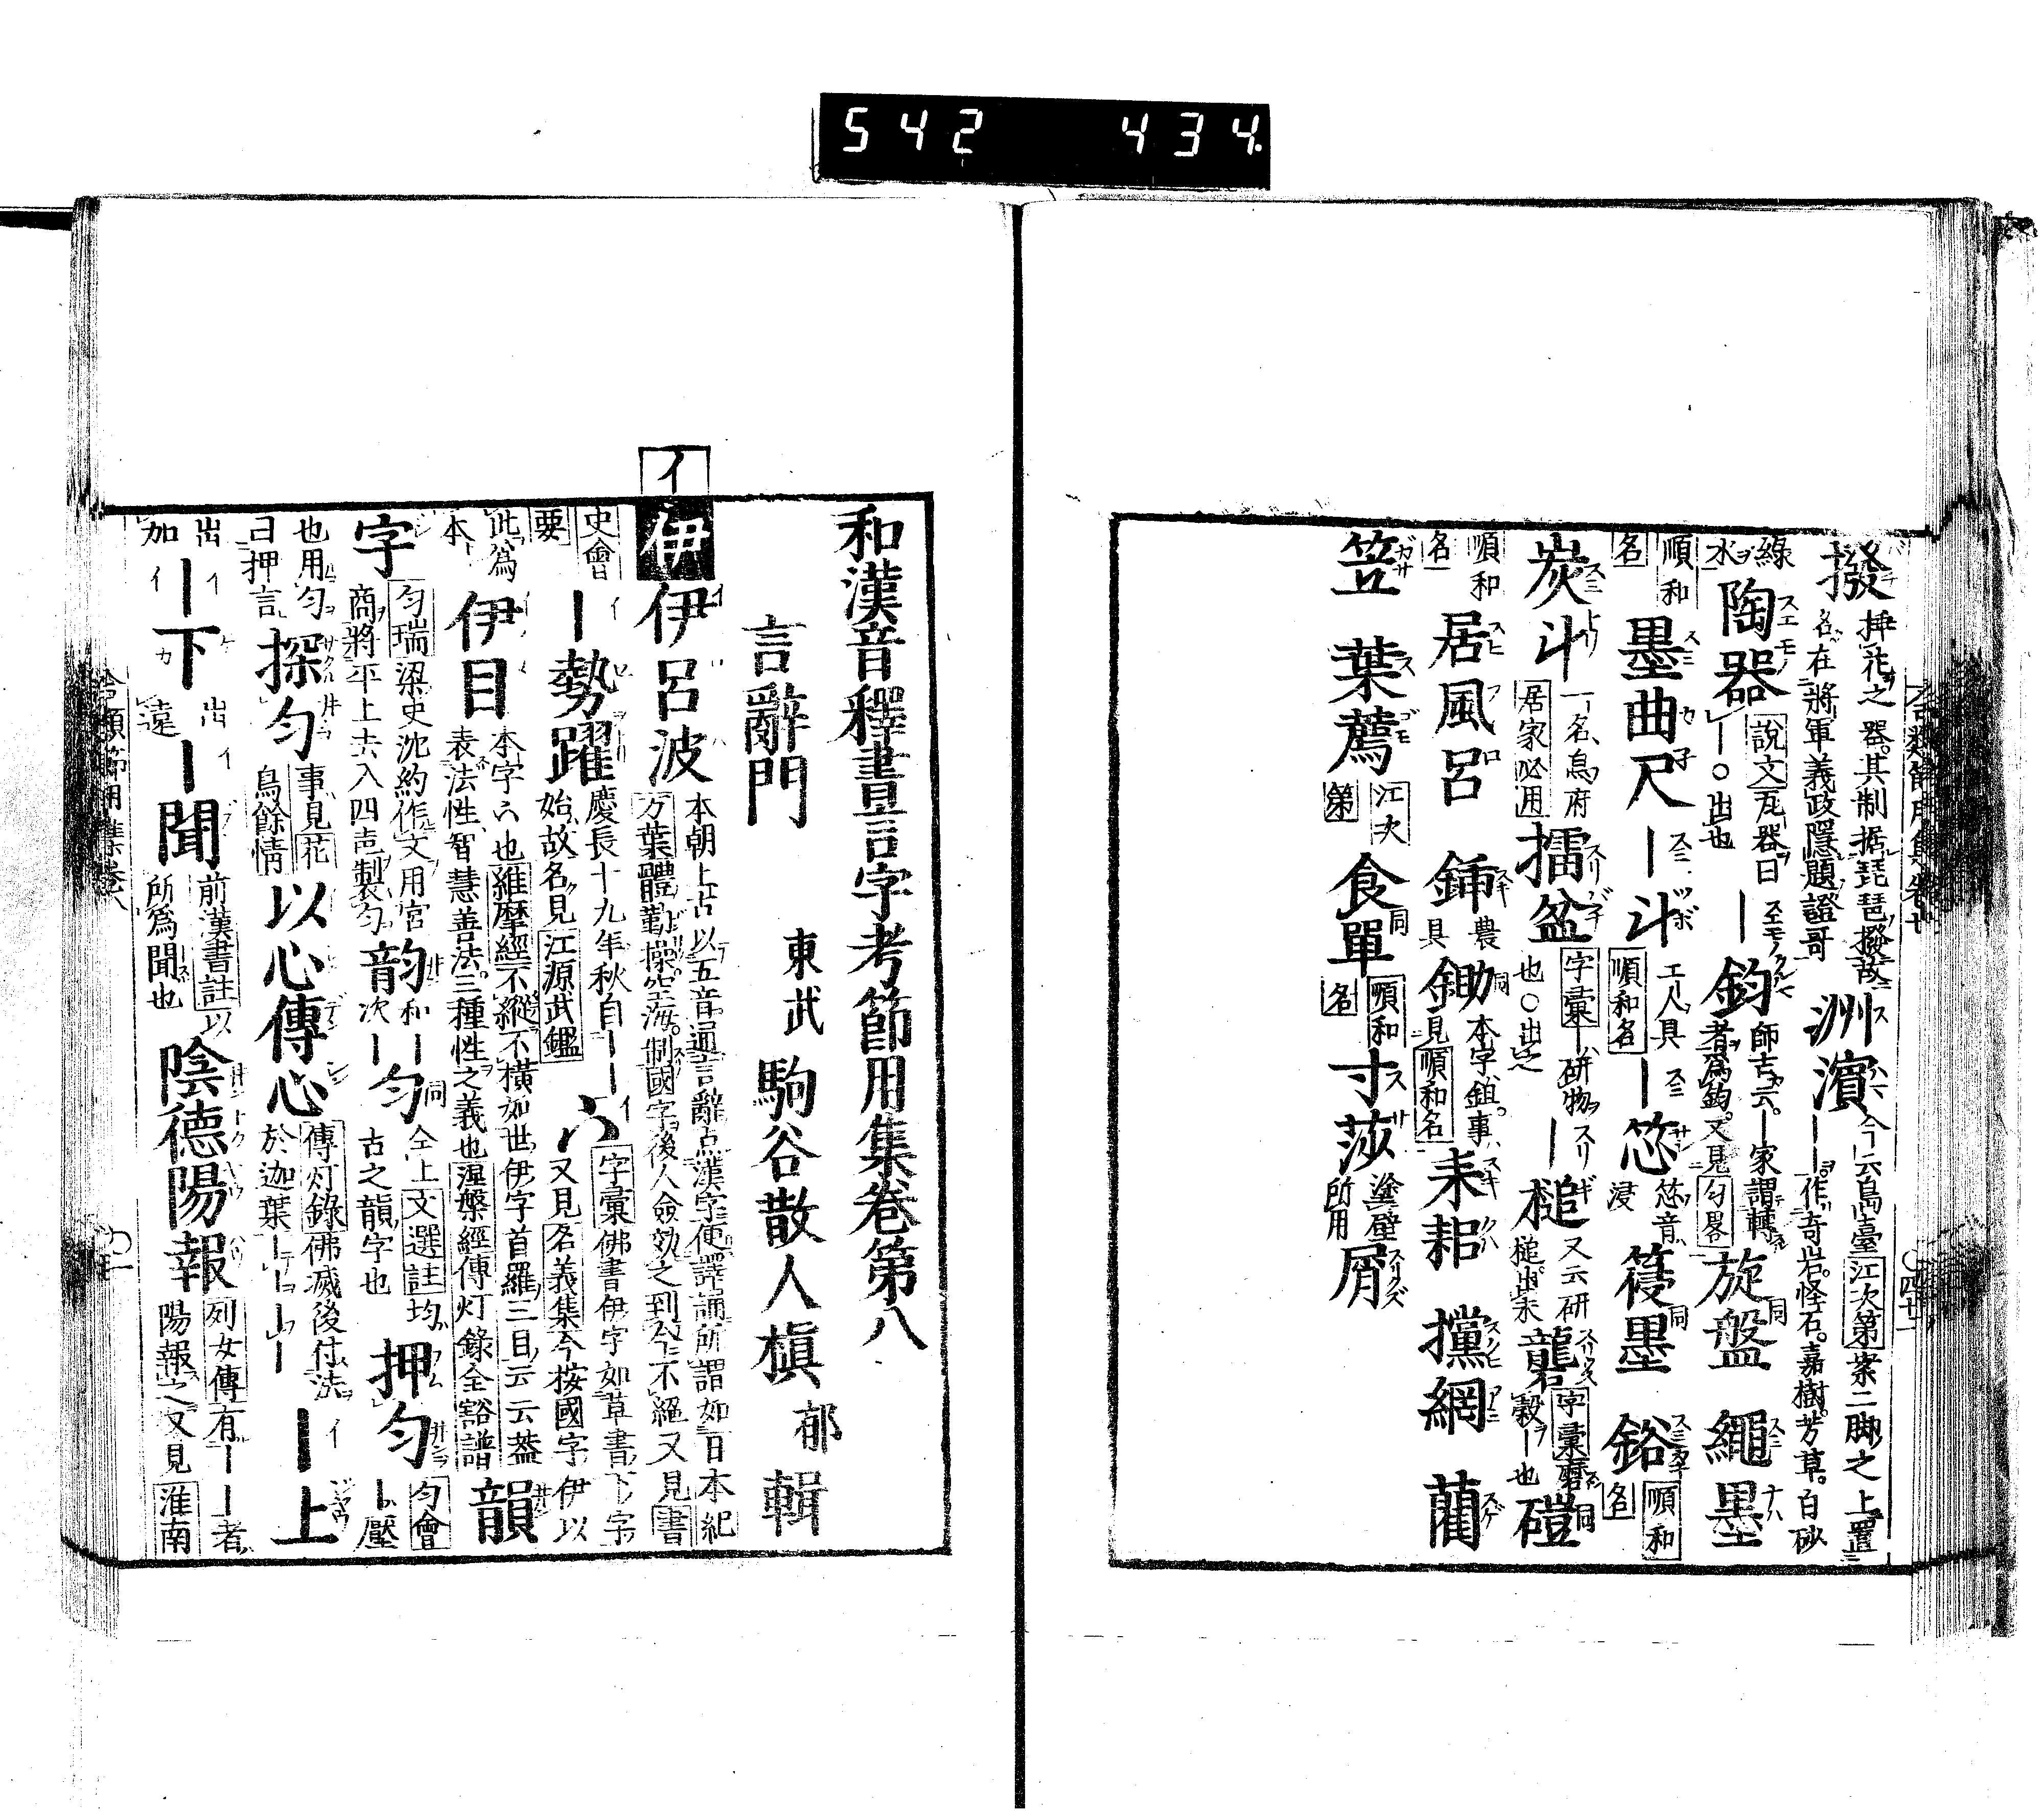 542 434.
撥 挿花之器其制据琵琶撥故 名在將軍義政隱題證哥 洲濱 今云島臺江次第案二脚之上置 ――作奇岩怪石嘉樹芳草白砂
綠水 陶器 説文瓦器曰―○出也 ―鈞 師古云―家謂轉者爲鈞又見匀畧 旋盤 繩墨
順和名 墨曲尺 ―斗 工人具順和名 ―㤀 浸 墨 順和名
炭斗 一名烏府居家必用 擂盆 字彙―研物也○出 ―槌 又云研槌出 礱 字彙磨穀―也 磑
順和名 居風呂 鍤 農具 鋤 本字鉏事見順和名 耒耜 攩網 藺
笠 葉薦 江次第 食單 順和名 寸莎 塗壁所用 屑
和漢音釋書言字考節用集卷第八
言辭門 東武 駒谷散人槙 郁 輯
イ
伊 伊呂波 本朝上古以五音通言辭点漢字便譯誦所謂如日本紀 万葉體勤操空海制國字後人僉效之到今不絕又見書
史會要 ―勢躍 慶長十九年秋自―― 始故名見江源武鑑 字彙佛書伊字如草書下字 又見名義集今按國字伊以
此爲本 伊目 本字六也維摩經不縱不橫如世伊字首羅三目云云蓋 表法性智慧善法三種性之義也涅槃經傳灯錄全谿譜 韻
字 匀瑞梁史沈約作文用宮商將平上去入四声製匀 韵 和―次― ―匀 仝上文選註均古之韻字也 押匀 匀會―壓
也用匀曰押言 探匀 事見花鳥餘情 以心傳心 傳灯錄佛滅後付法於迦葉―― ―上
出加 ―下 出遠 ―聞 前漢書註以所爲聞也 陰德陽報 列女傳有――者陽報之又見淮南